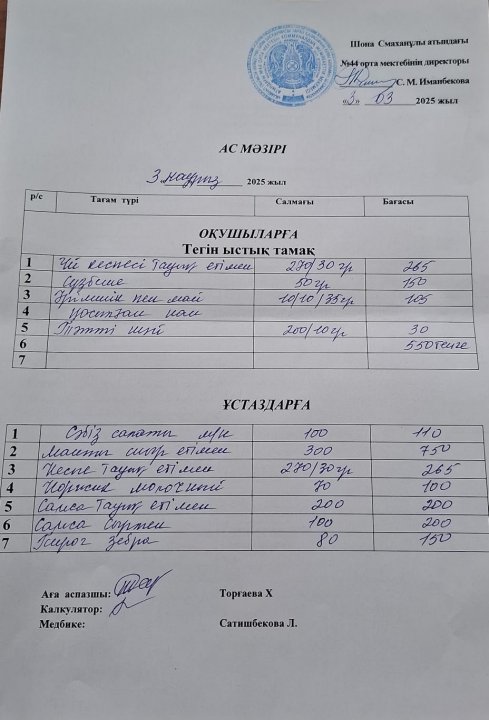 Шона Смаханұлы атындағы
№44 орта мектебінің директоры
С. М. Иманбекова
«3» 03 2025 жыл
АС МӘЗІРІ
3 наурыз 2025 жыл
р/с Тағам түрі Салмағы Бағасы
ОҚУШЫЛАРҒА
Тегін ыстық тамақ
1 Үй кеспесі тауық етімен 270/30 гр 265
2 Сүзбеше 50 гр 150
3 Ірімшік пен май 10/10/35гр 105
4 қосылған нан
5 Тәтті шәй 200/10 гр 30
6 550 теңге
7
ҰСТАЗДАРҒА
1 Сәбіз салаты м/к 100 110
2 Манты сиыр етімен 300 750
3 Кеспе тауық етімен 270/30гр 265
4 Коржик молочный 70 100
5 Самса тауық етімен 200 200
6 Самса сырмен 100 200
7 Пирог Зебра 80 150
Аға аспазшы: Торғаева Х
Калкулятор:
Медбике: Сатишбекова Л.